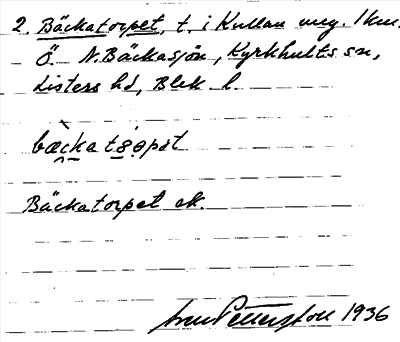 2. Bäckatorpet, t. i Kullan ung. 1 km.
Ö. N. Bäckasjön, Kyrkhults sn,
Listers hd, Blek. l.
Bäckatorpet ek.
1936